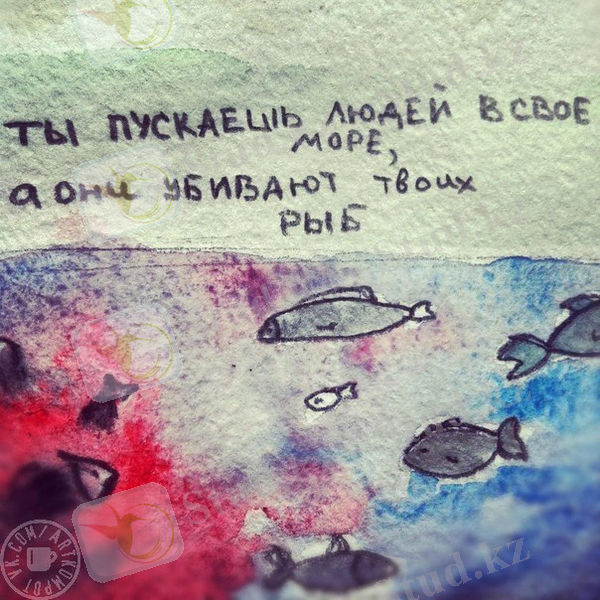 ТЫ ПУСКАЕШЬ ЛЮДЕЙ В СВОЕ
МОРЕ,
а они УБИВАЮТ твоих
РЫБ
VK.COM/ARTKOMPOT
stud.kz